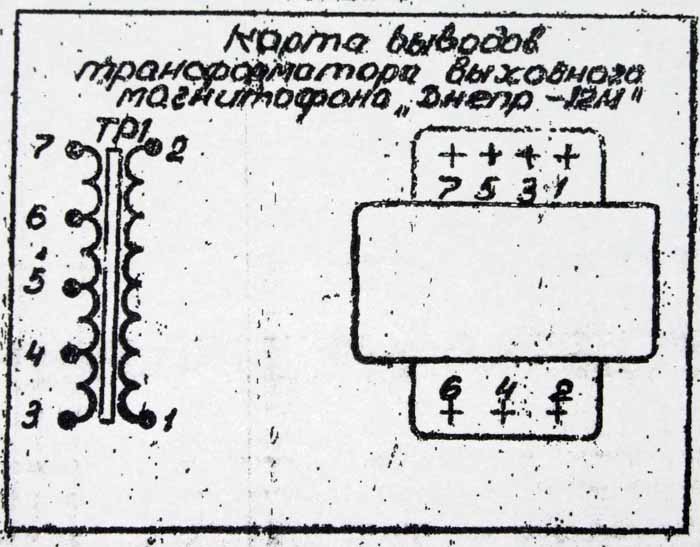 Карта выводов
трансформатора выходного
магнитофона „Днепр-12М"
ТР1
7 2
6
5
4
3 1
7 5 3 1
6 4 2